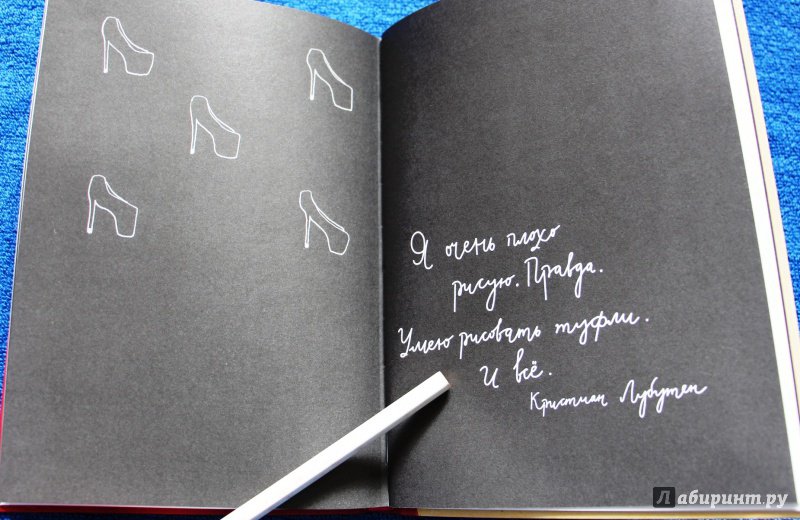 Я очень плохо
рисую. Правда.
Умею рисовать туфли.
И всё.
Кристиан Лубутен
Лабиринт.ру